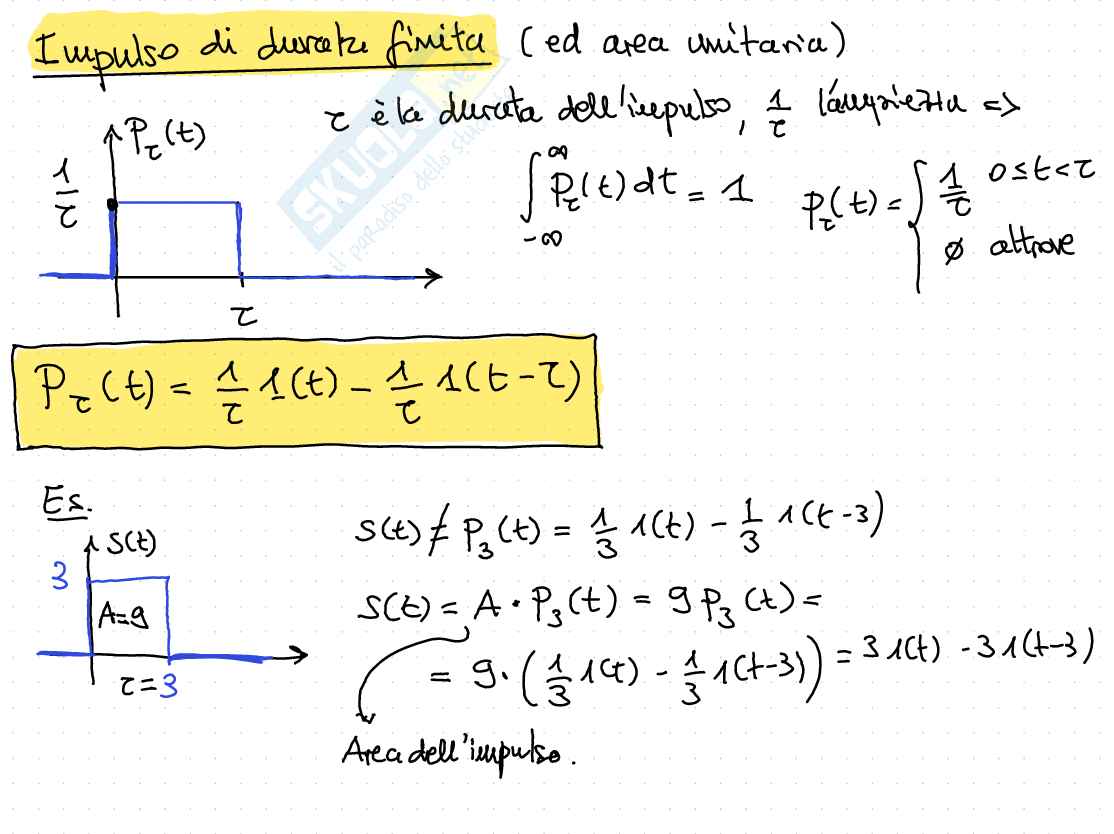 Impulso di durata finita (ed area unitaria)
τ è la durata dell'impulso, 1/τ l'ampiezza =>
P_τ(t)
1/τ
τ
∫_{-∞}^{∞} P_τ(t) dt = 1
P_τ(t) = { 1/τ 0 ≤ t < τ
∅ altrove
P_τ(t) = 1/τ 1(t) - 1/τ 1(t - τ)
Es.
S(t)
3
A=9
τ=3
S(t) ≠ P_3(t) = 1/3 1(t) - 1/3 1(t-3)
S(t) = A · P_3(t) = 9 P_3(t) =
= 9 · (1/3 1(t) - 1/3 1(t-3)) = 3 1(t) - 3 1(t-3)
Area dell'impulso.
SKUOLA.net
il paradiso dello studente